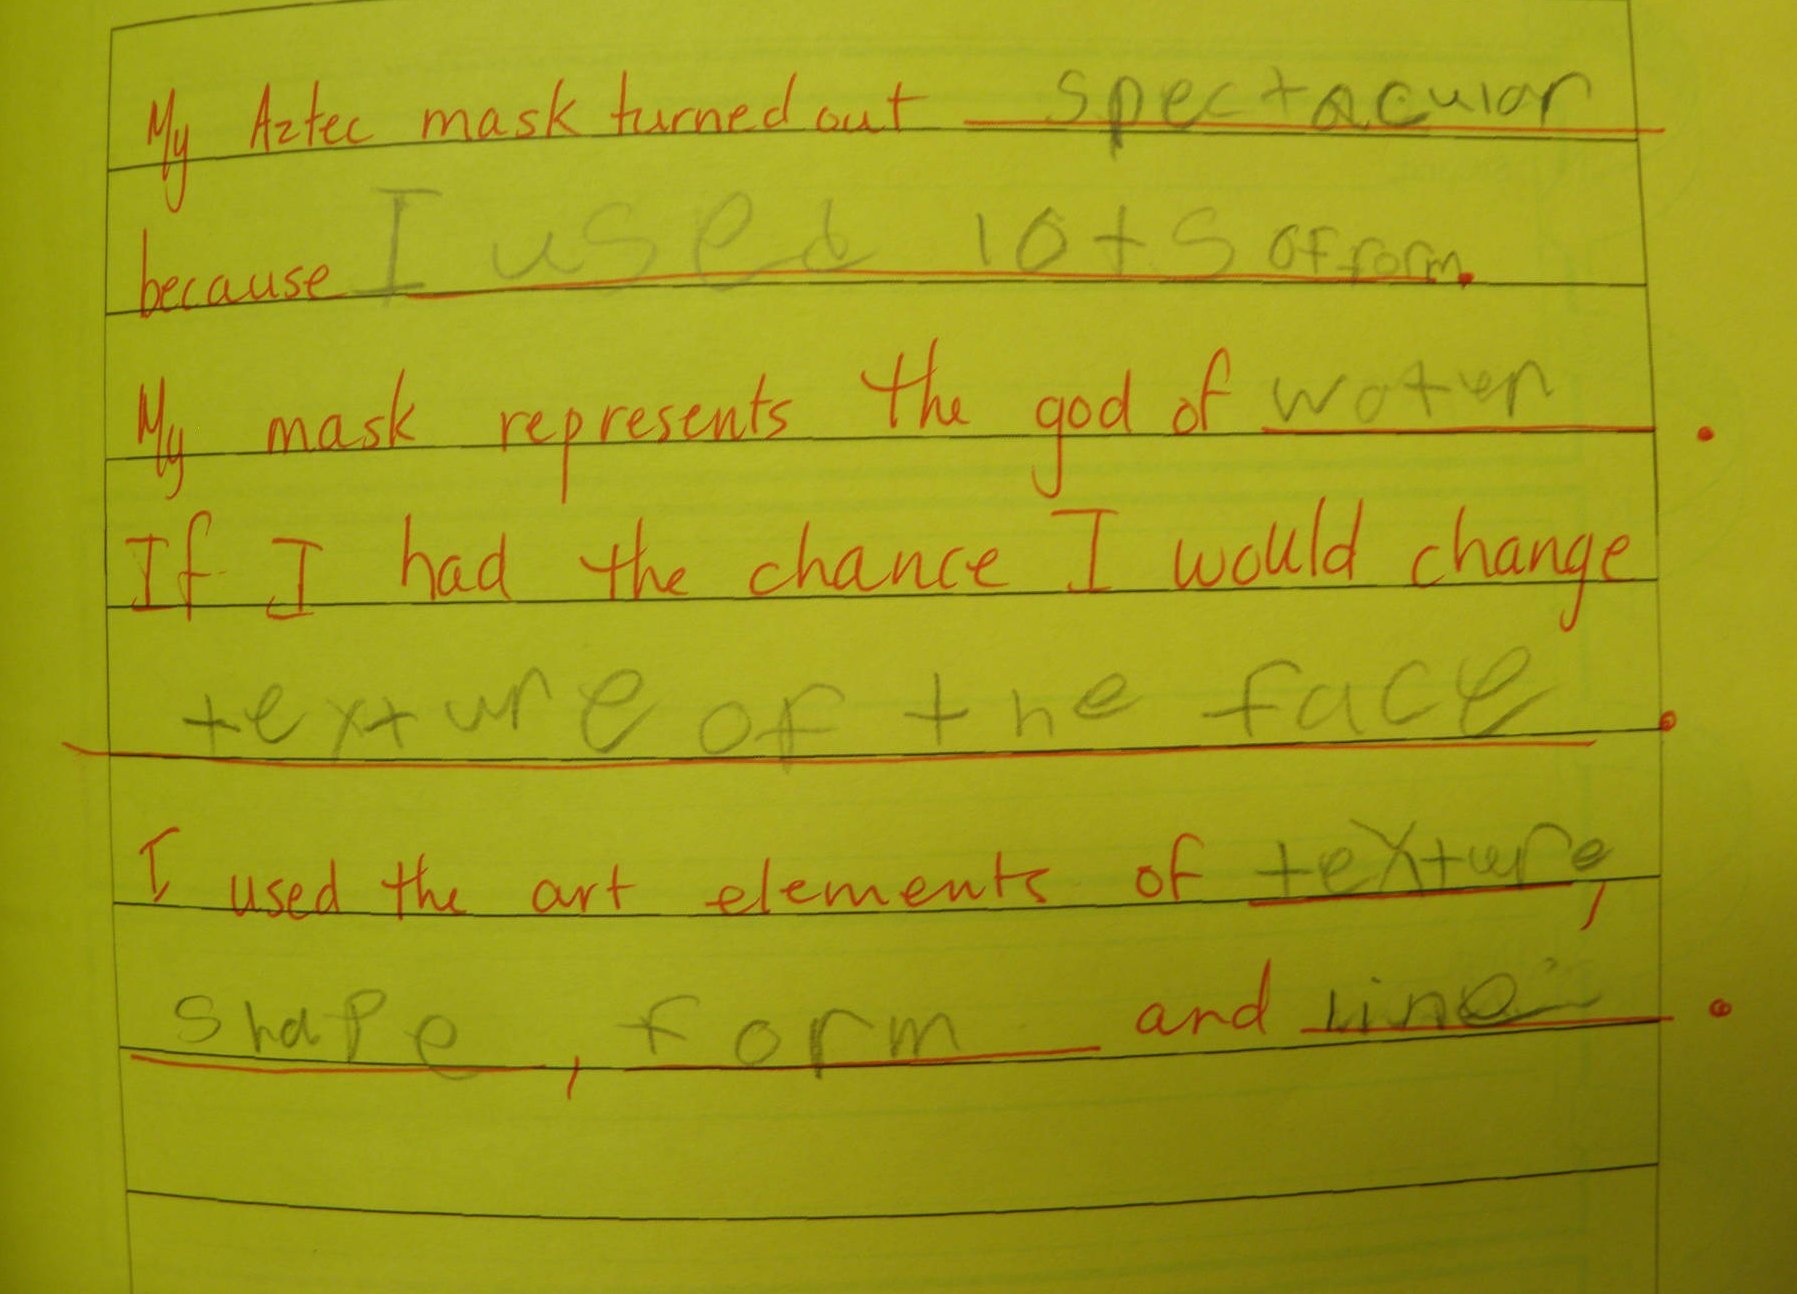 My Aztec mask turned out spectacular
because I used lots of form.
My mask represents the god of water.
If I had the chance I would change
texture of the face.
I used the art elements of texture,
shape, form and line.